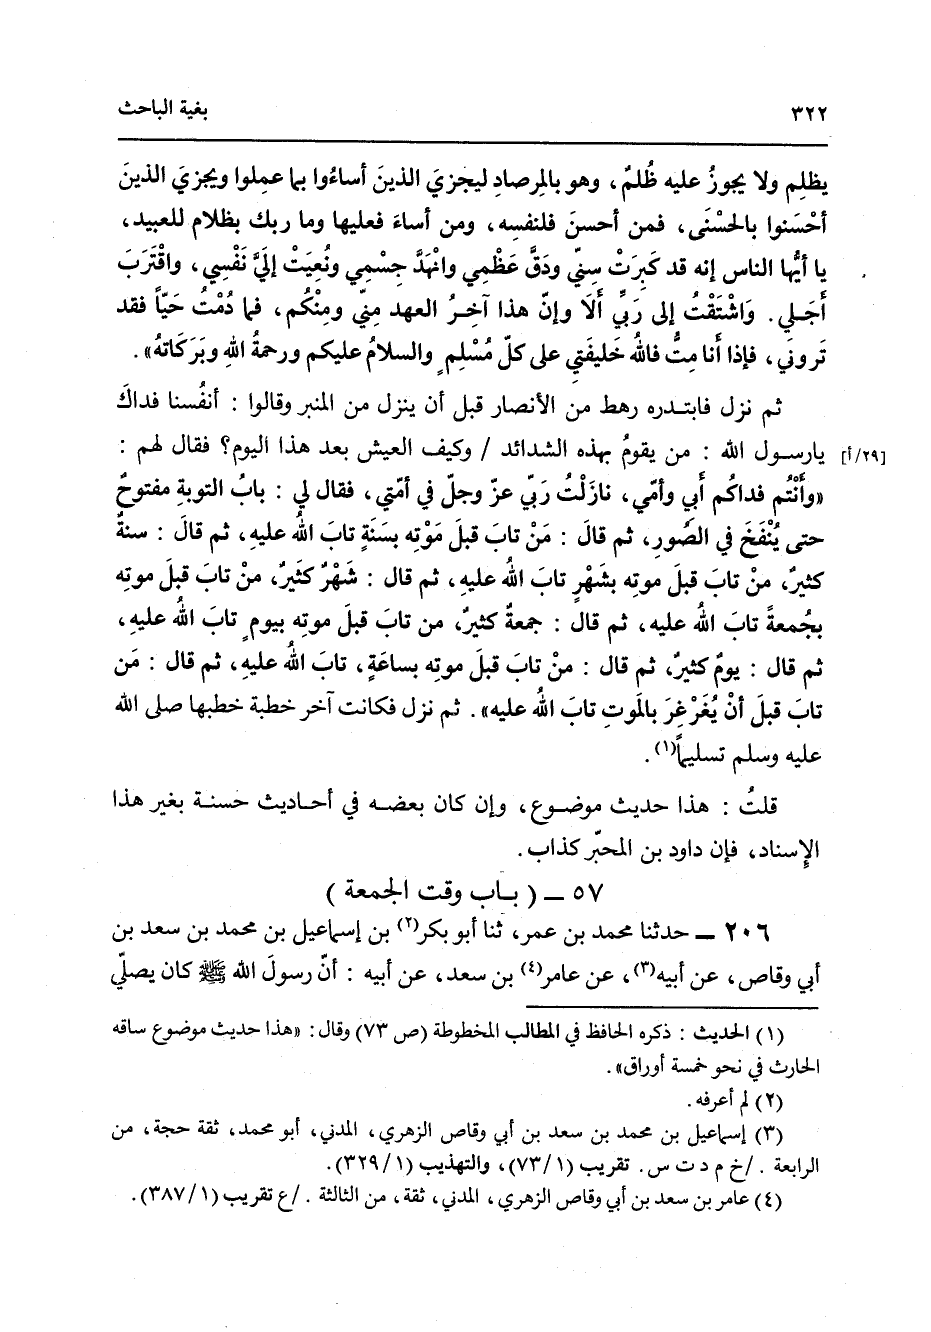 ٣٢٢ بغية الباحث
يظلِم ولا يجوزُ عليه ظُلمٌ، وهو بالمِرصادِ ليجزيَ الذينَ أساءُوا بما عمِلوا ويجزيَ الذينَ
أحْسَنوا بالحُسْنَى، فمن أحسنَ فلنفسِه، ومن أساءَ فعليها وما ربك بظلام للعبيد،
يا أيُّها الناس إنه قد كَبِرَتْ سِنيّ ودَقَّ عَظْمِي وانْهَدَّ جِسْمِي ونُعِيَتْ إليَّ نَفْسِي، واقْتَرَبَ
أَجَلي. وَاشْتَقْتُ إلى رَبِّي أَلَا وإنّ هذا آخِرُ العهدِ مِنّي ومِنْكُم، فما دُمْتُ حَيّاً فقد
تَروني، فإذا أنا مِتُّ فاللهُ خَليفَتي على كلّ مُسْلِمٍ والسلامُ عليكم ورحمةُ اللهِ وبَرَكَاتهُ».
ثم نزل فابتدره رهط من الأنصار قبل أن ينزل من المنبر وقالوا : أنفُسنا فداكَ
يارسول الله : من يقومُ بهذه الشدائد / وكيف العيش بعد هذا اليوم؟ فقال لهم : [٢٩/أ]
«وأَنْتُم فداكُم أَبي وأمّي، نازَلْتُ رَبيّ عزّ وجلّ في أمّتي، فقال لي : بابُ التوبةِ مفتوحٌ
حتى يُنْفَخَ في الصُورِ، ثم قالَ : مَنْ تابَ قبلَ مَوْتِه بسَنَةٍ تابَ اللهُ عليهِ، ثم قالَ : سنةٌ
كثيرٌ، منْ تابَ قبلَ موتِه بشَهْرٍ تابَ اللهُ عليهِ، ثم قال : شَهْرٌ كثيَرٌ، منْ تابَ قبلَ موتِه
بجُمعةً تابَ اللهُ عليه، ثم قال : جمعةٌ كثيرٌ، من تابَ قبلَ موتِه بيومٍ تابَ اللهُ عليهِ،
ثم قال : يومٌ كثيرٌ، ثم قال : منْ تابَ قبلَ موتِه بساعَةٍ، تابَ اللهُ عليهِ، ثم قال : مَن
تابَ قبلَ أنْ يُغَرْغِرَ بالمَوتِ تابَ اللهُ عليه». ثم نزل فكانت آخر خطبة خطبها صلى الله
عليه وسلم تسليماً(١).
قلتُ : هذا حديث موضوع، وإن كان بعضه في أحاديث حسنة بغير هذا
الإسناد، فإن داود بن المحبّر كذاب.
٥٧ ــ ( باب وقت الجمعة )
٢٠٦ ــ حدثنا محمد بن عمر، ثنا أبو بكر(٢) بن إسماعيل بن محمد بن سعد بن
أبي وقاص، عن أبيه(٣)، عن عامر(٤) بن سعد، عن أبيه : أنّ رسولَ الله ﷺ كان يصلّي
(١) الحديث : ذكره الحافظ في المطالب المخطوطة (ص ٧٣) وقال: «هذا حديث موضوع ساقه
الحارث في نحو خمسة أوراق».
(٢) لم أعرفه.
(٣) إسماعيل بن محمد بن سعد بن أبي وقاص الزهري، المدني، أبو محمد، ثقة حجة، من
الرابعة ./خ م د ت س. تقريب (١/٧٣)، والتهذيب (١/٣٢٩).
(٤) عامر بن سعد بن أبي وقاص الزهري، المدني، ثقة، من الثالثة ./ع تقريب (١/٣٨٧).